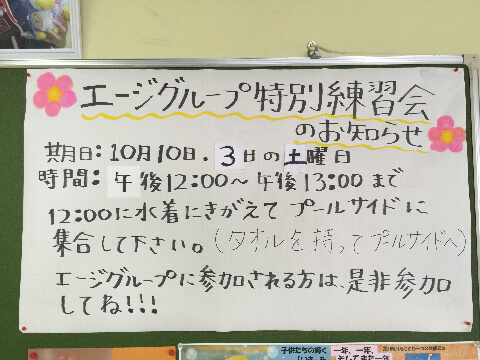 エージグループ特別練習会
のお知らせ
期日：10月10日．3日の土曜日
時間：午後12:00〜午後13:00まで
12:00に水着にきがえてプールサイドに
集合して下さい。（タオルを持ってプールサイドへ）
エージグループに参加される方は、是非参加
してね!!!
子供たちの輝く
一年、一年、